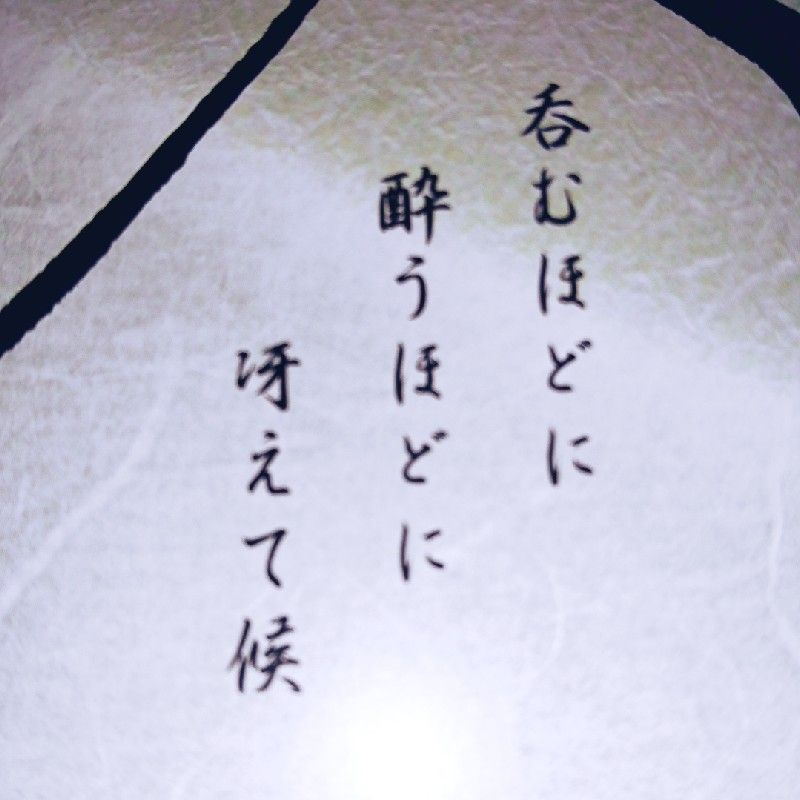 呑むほどに
酔うほどに
冴えて候